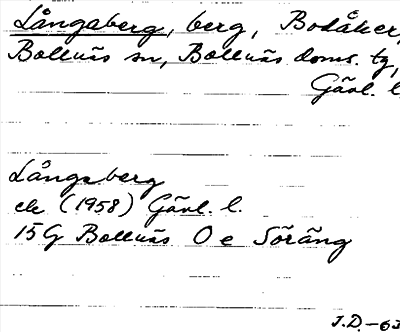 Långsberg, berg, Bodåker,
Bollnäs sn, Bollnäs doms. tg,
Gävl. l.
Långsberg
ek (1958) Gävl. l.
15G Bollnäs O e Söräng
J.D.-63